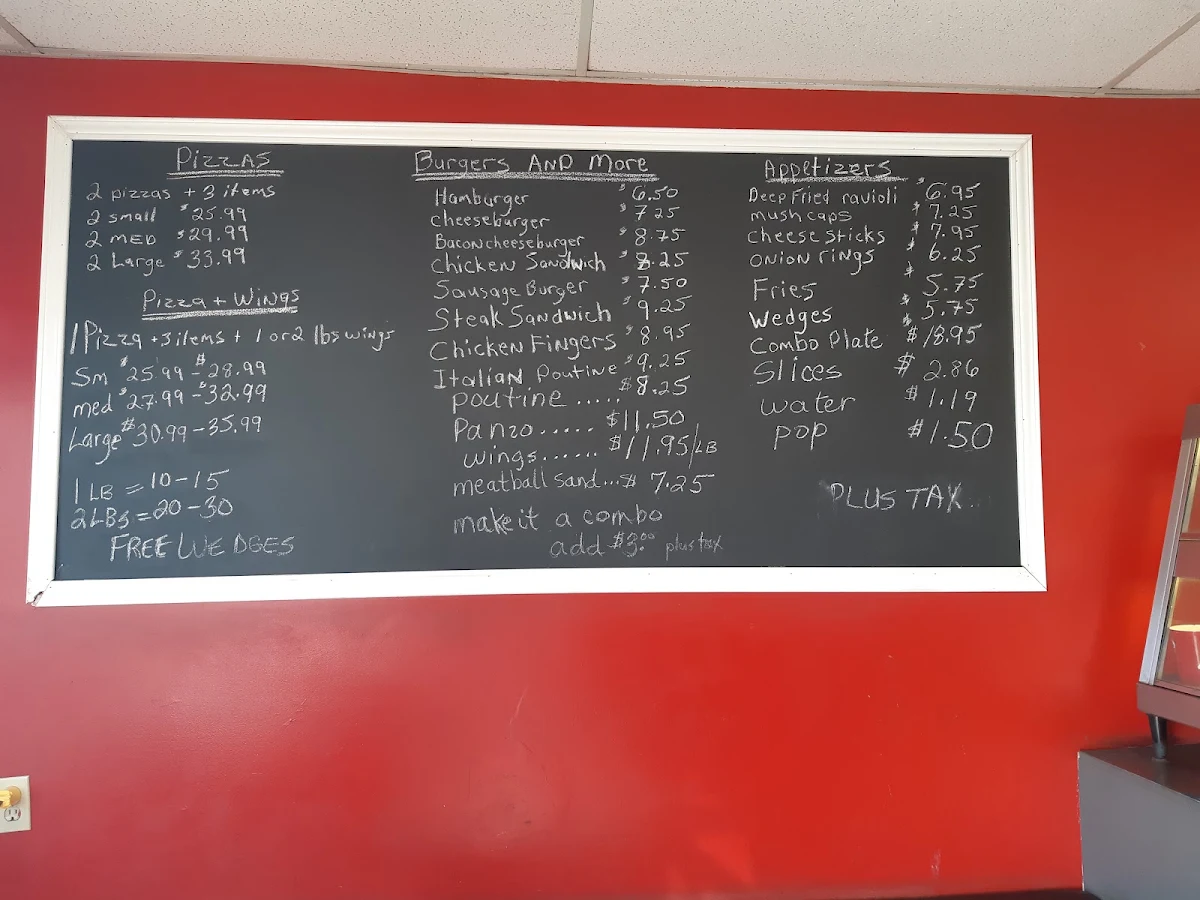 Pizzas
2 pizzas + 3 items
2 small $25.99
2 MED $29.99
2 Large $33.99
Pizza + Wings
1 Pizza +3 items + 1 or 2 lbs wings
Sm $25.99 - $28.99
med $27.99 - $32.99
Large $30.99 - 35.99
1 LB = 10 - 15
2 LBs = 20 - 30
FREE WEDGES
Burgers AND More
Hamburger $6.50
cheeseburger $7.25
Baconcheeseburger $8.75
Chicken Sandwich $8.25
Sausage Burger $7.50
Steak Sandwich $9.25
Chicken Fingers $8.95
Italian Poutine $9.25
poutine ..... $8.25
Panzo ..... $11.50
wings ...... $11.95/LB
meatball sand... $7.25
make it a combo
add $3.00 plus tax
Appetizers
Deep Fried ravioli $6.95
mushcaps $7.25
cheese sticks $7.95
onion rings $6.25
Fries $5.75
Wedges $5.75
Combo Plate $18.95
Slices $2.86
water $1.19
pop $1.50
PLUS TAX